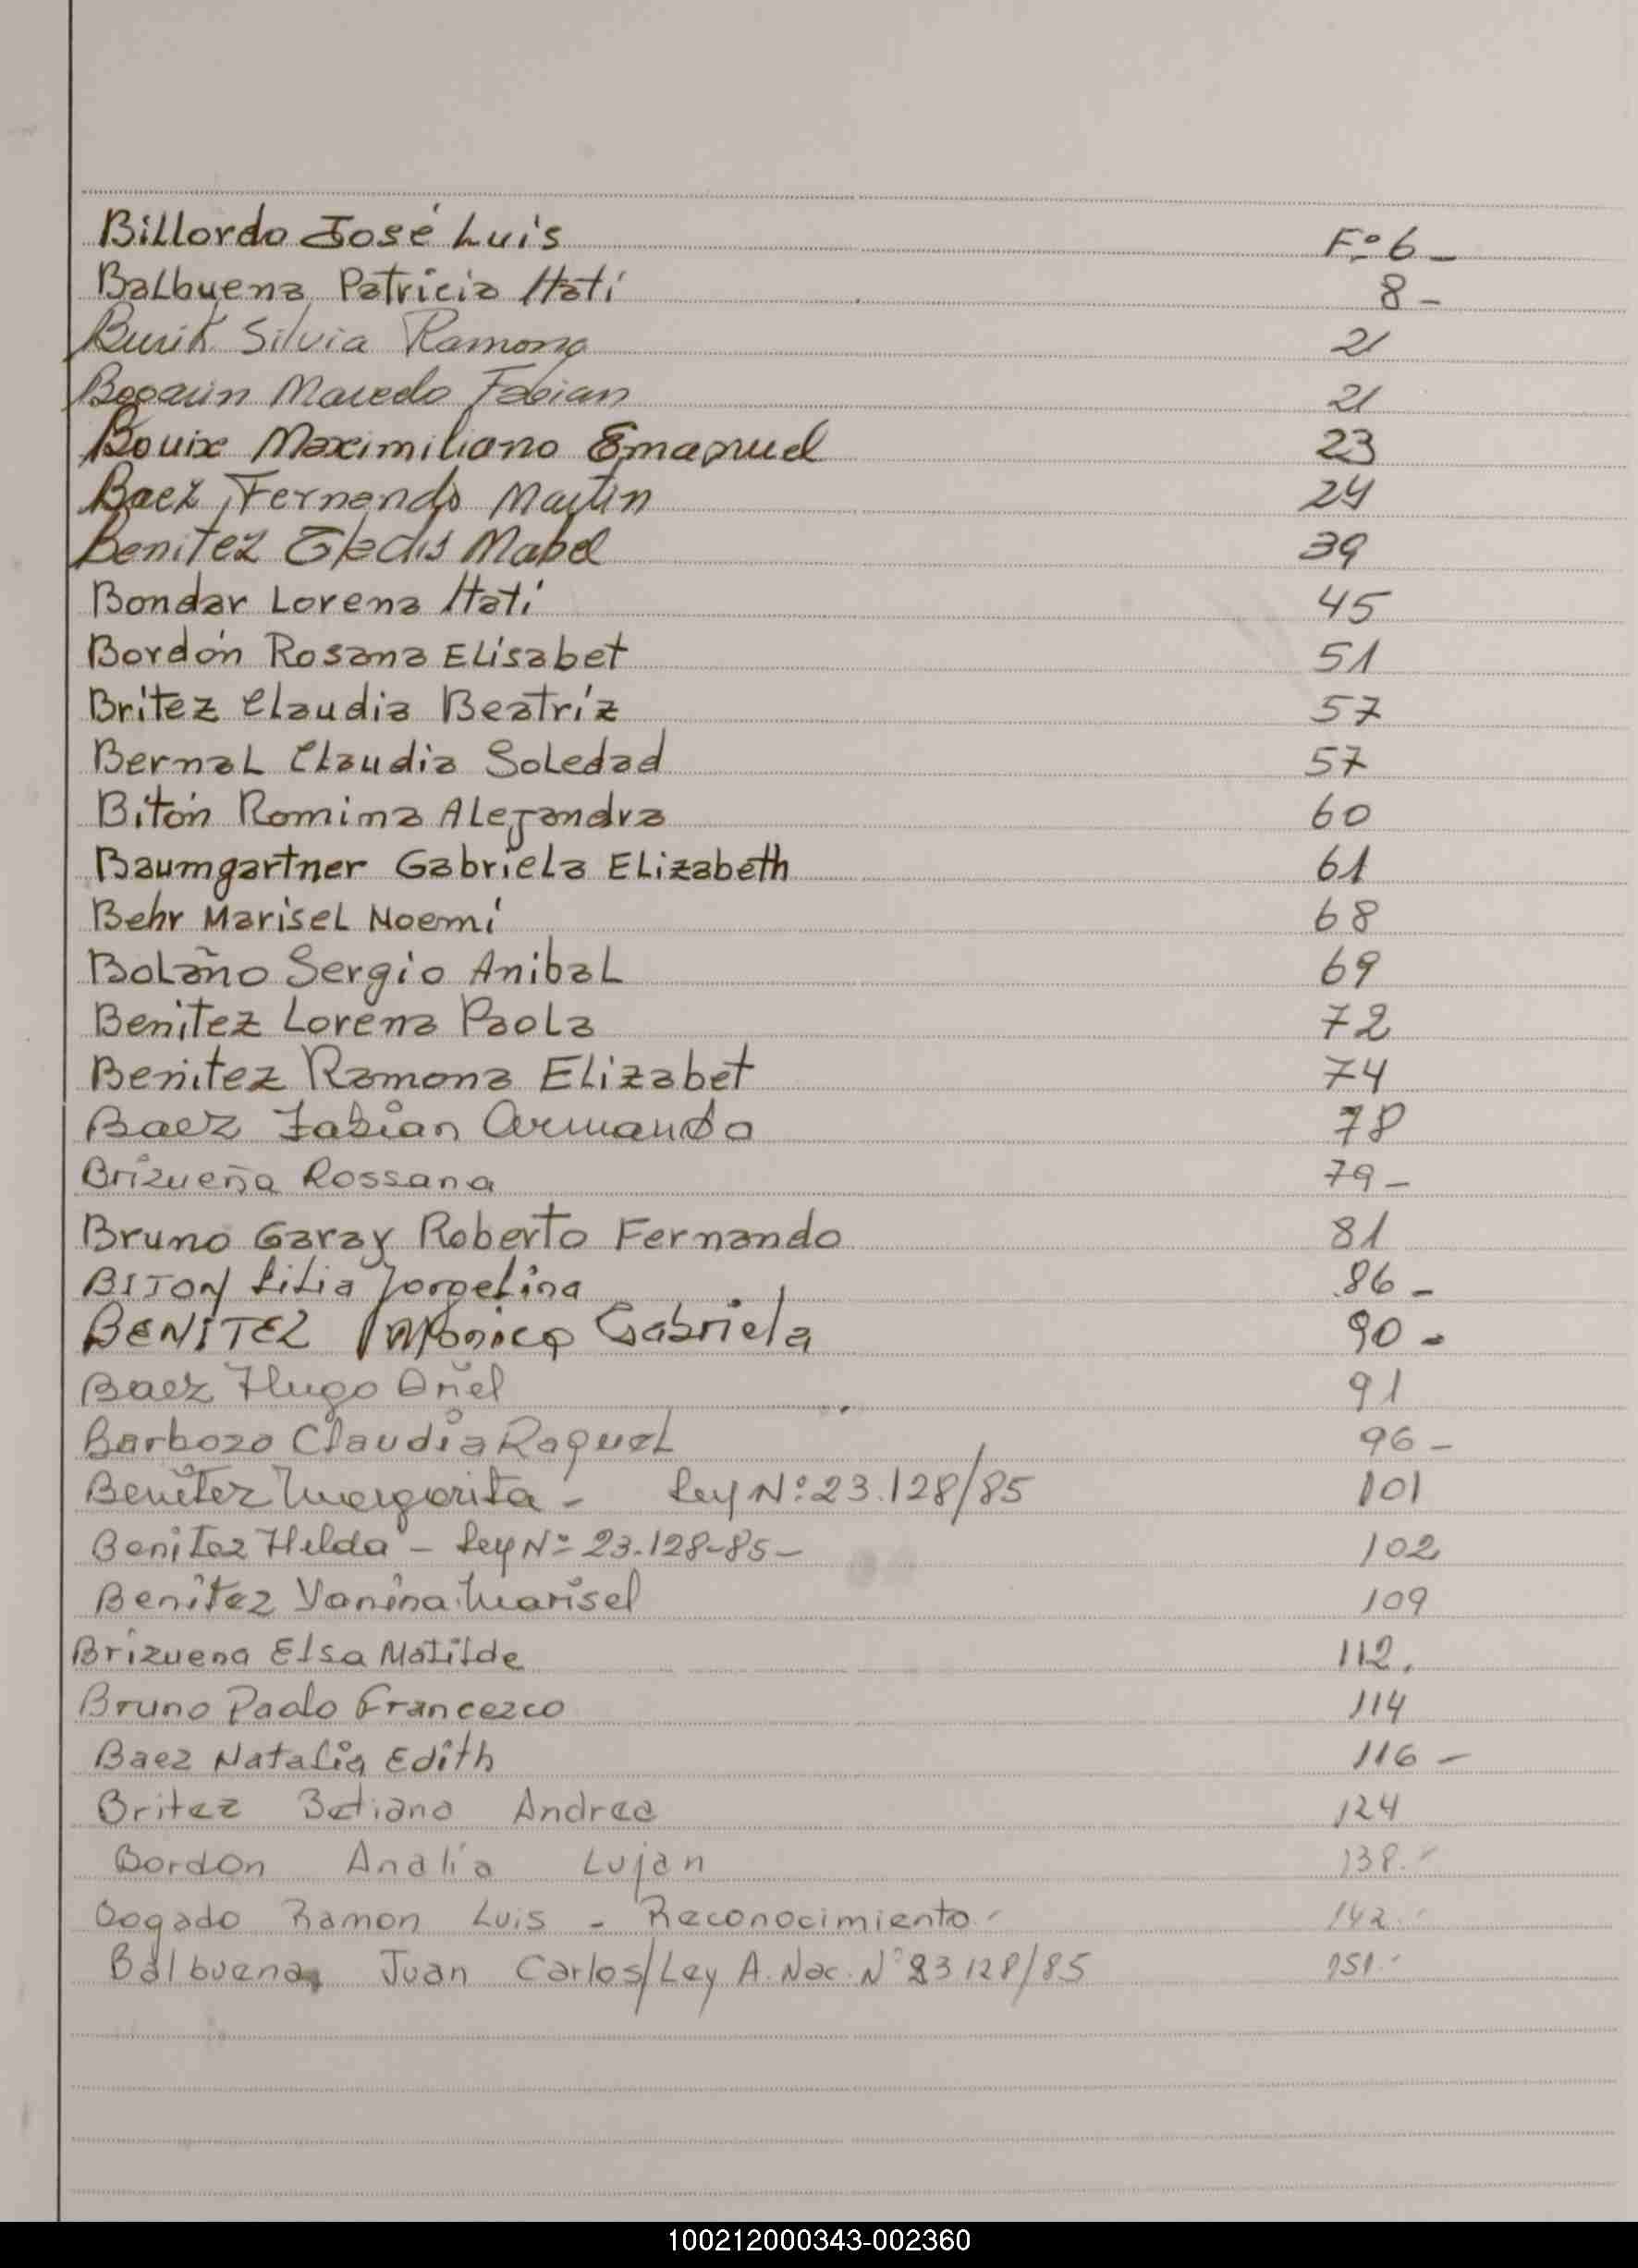 Billordo José Luis F=º 6 -
Balbuena Patricia Itatí 8 -
Burik Silvia Ramona 21
Bogarin Marcelo Fabian 21
Bouix Maximiliano Emanuel 23
Baez, Fernando Martin 24
Benitez Gladis Mabel 39
Bondar Lorena Itatí 45
Bordón Rosana Elisabet 51
Britez Claudia Beatríz 57
Bernal Claudia Soledad 57
Bitón Romina Alejandra 60
Baumgartner Gabriela Elizabeth 61
Behr Marisel Noemí 68
Bolaño Sergio Anibal 69
Benitez Lorena Paola 72
Benitez Ramona Elizabet 74
Baez Fabian Armando 78
Brizueña Rossana 79 -
Bruno Garay Roberto Fernando 81
BITON Lilia Jorgelina 86 -
BENITEZ Monica Gabriela 90 -
Baez Hugo Ariel 91
Barbozo Claudia Raquel 96 -
Benitez Margarita - Ley Nº 23.128/85 101
Benitez Hilda - Ley Nº 23.128-85- 102
Benitez Yanina Marisel 109
Brizuena Elsa Matilde 112.
Bruno Paolo Francezco 114
Baez Natalia Edith 116 -
Britez Betiana Andrea 124
Bordon Analía Lujan 138.-
Bogado Ramon Luis - Reconocimiento.- 142.-
Balbuena, Juan Carlos/Ley A. Nac. Nº 23128/85 151.-
100212000343-002360